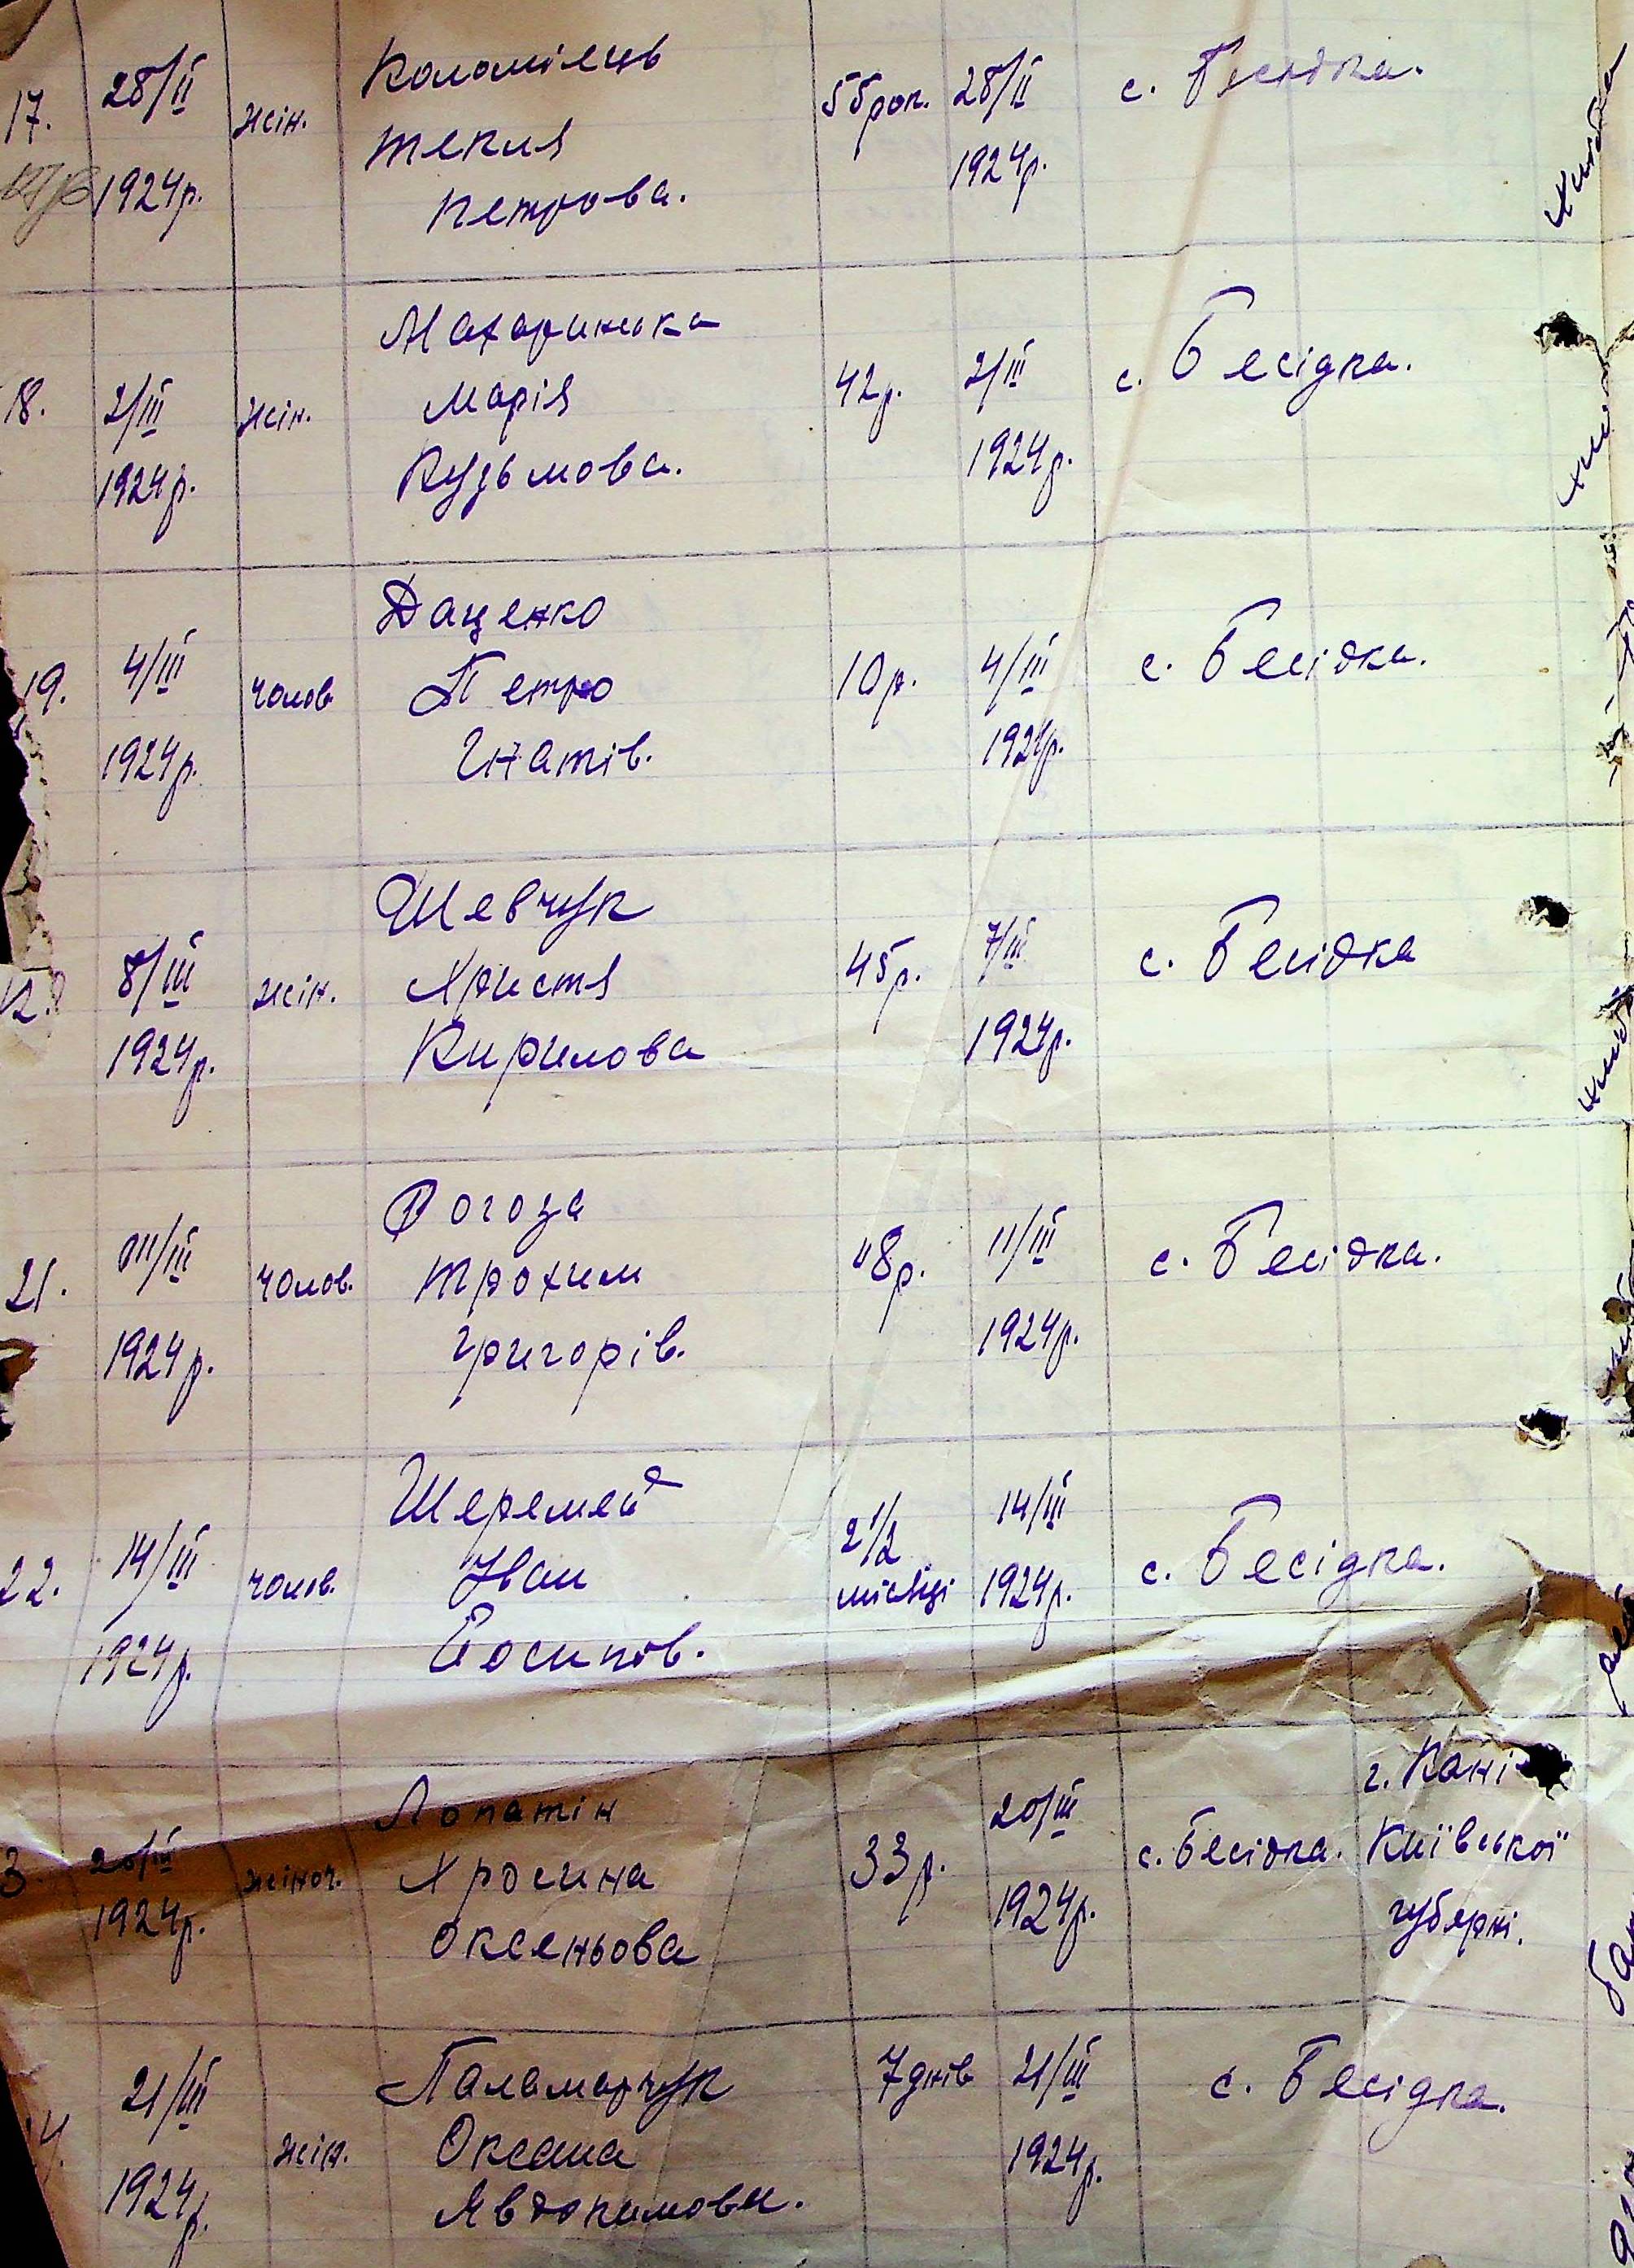 17. 28/II жін. Коломієць 55 рок. 28/II с. Бесидка.
1924р. Текля 1924р.
Петрова.
18. 2/III жін. Махаринська 42р. 2/III с. Бесідка.
1924р. Марія 1924р.
Кузьмова.
19. 4/III чолов. Даценко 10р. 4/III с. Бесідка.
1924р. Петро 1924р.
Гнатів.
8/III жін. Шевчук 45р. 7/III с. Бесідка
1924р. Христя 1924р.
Кирилова
21. 11/III чолов. Рогоза 48р. 11/III с. Бесідка.
1924р. Трохим 1924р.
Григорів.
22. 14/III чолов. Шеремет 2 1/2 14/III с. Бесідка.
1924р. Іван місяці 1924р.
Йосипів.
3. 20/III жіноч. Лопатін 33р. 20/III с. Бесідка. г. Кані
1924р. Хросина 1924р. Київської
Оксеньова губерні.
4. 21/III жін. Паламарчук 7 днів 21/III с. Бесідка.
1924р. Оксана 1924р.
Явдокимова.